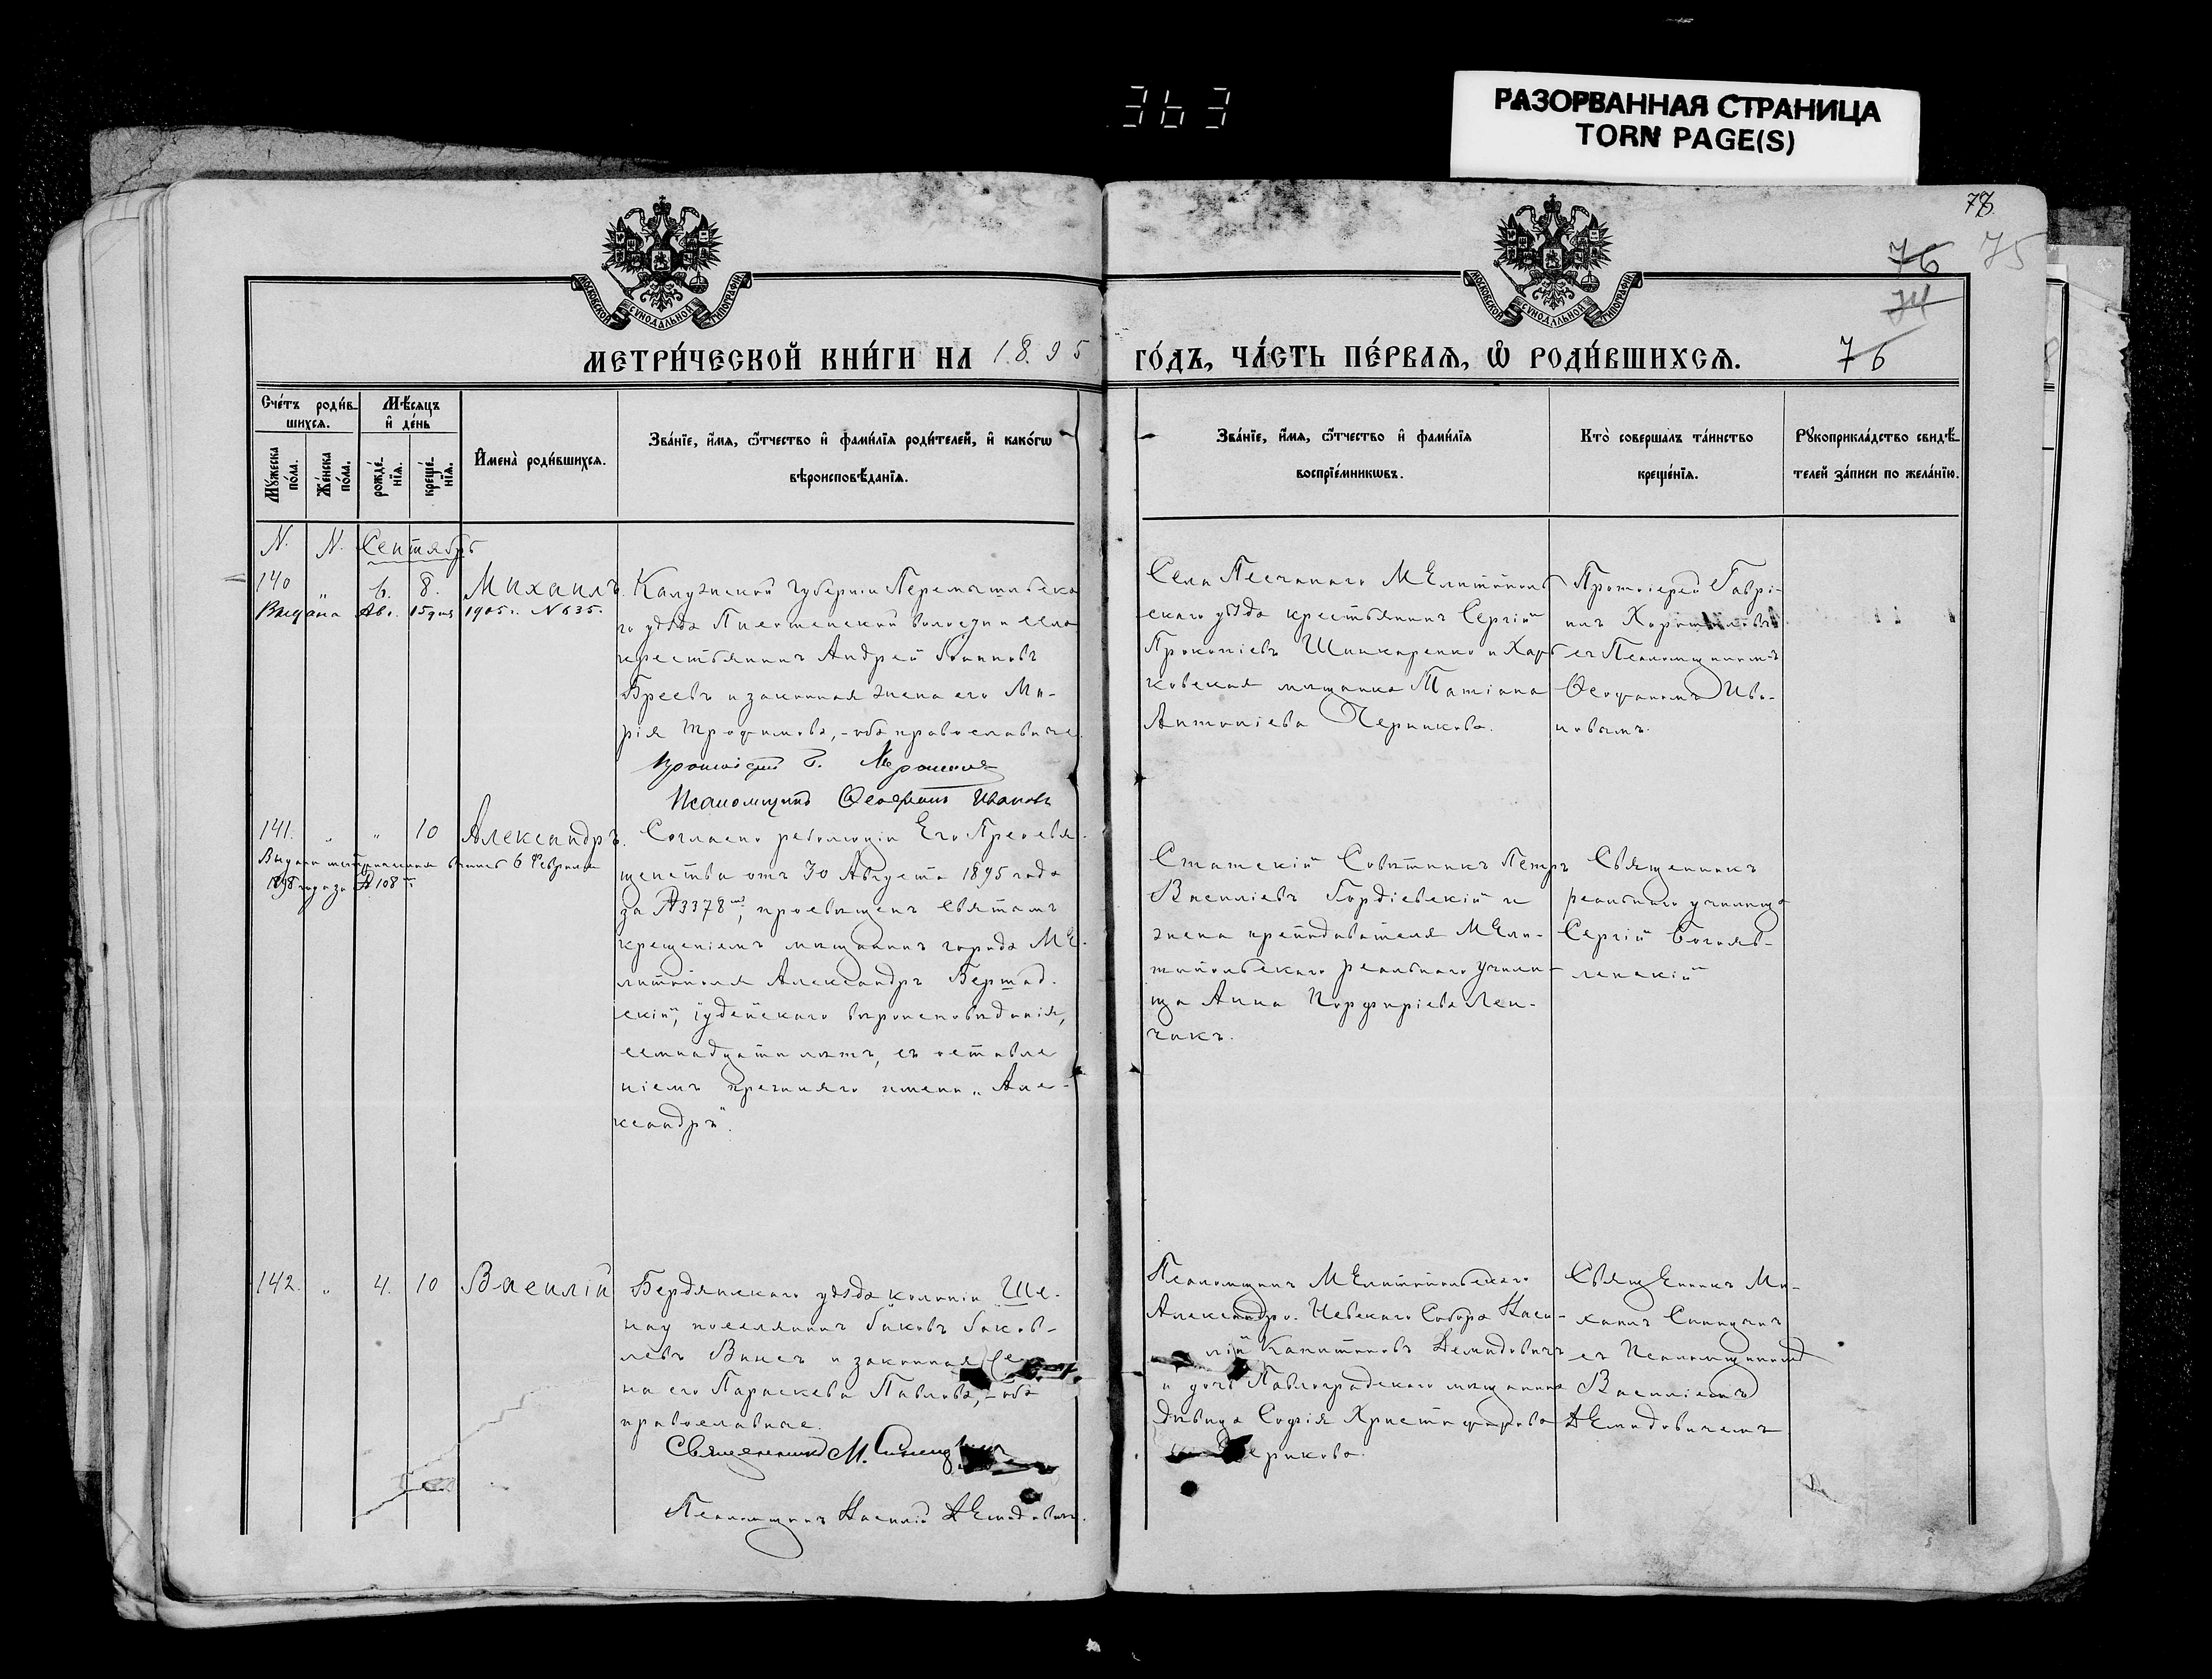 363
РАЗОРВАННАЯ СТРАНИЦА
TORN PAGE(S)
78
76 75
74
МЕТРИ́ЧЕСКОЙ КНИ́ГИ НА 1895 ГО́ДЪ, ЧА́СТЬ ПЕ́РВАЯ, Ѡ҆ РОДИ́ВШИХСЯ.
76
Сче́тъ роди́в-
шихся.
Мѣ́сяцъ
и҆ де́нь
Му́жеска по́ла.
Же́нска по́ла.
рожде́-
нїѧ.
креще́-
нїѧ.
И҆мена̀ роди́вшихся.
Зва́нїе, и҆́мя, ѻ҆́тчество и҆ фами́лїя роди́телей, и҆ како́гѡ
вѣроисповѣ́данїя.
Зва́нїе, и҆́мя, ѻ҆́тчество и҆ фами́лїя
воспрїе́мникѡвъ.
Кто̀ соверша́лъ та́инство
креще́нїя.
Рꙋкоприкла́дство свидѣ́-
телей за́писи по жела́нїю.
N. N. Сентябрь
140 " 6. 8. Михаилъ.
Выдана Авг. 15 дня 1905 г. N 635.
Калужской губерніи Перемышльска
го уѣзда волости и села
крестьянинъ Андрей Іоанновъ
Бреевъ и законная жена его Ма-
рія Трофимова, - оба православные.
Протоіерей Г. Хорошиловъ
Псаломщикъ Ѳеофанъ Ивановъ
Села Песчанаго Мелитополь
скаго уѣзда крестьянинъ Сергій
Прокопіевъ Шинкаренко и Харь
ковская мѣщанка Татіана
Антоніева Черникова.
Протоіерей Гаврі-
илъ Хорошиловъ
съ Псаломщикомъ
Ѳеофаномъ Ива-
новымъ.
141. " " 10 Александръ.
Выдана метрическая выпись 6 Февраля
1898 года за № 108
Согласно резолюціи Его Преосвя-
щенства отъ 30 Августа 1895 года
за № 3378, просвѣщенъ святымъ
крещеніемъ мѣщанинъ города Ме-
литополя Александръ Бершад-
скій, іудейскаго вѣроисповѣданія,
семнадцати лѣтъ, съ оставле
ніемъ прежняго имени „Але-
ксандръ".
Статскій Совѣтникъ Петръ
Василіевъ Гордіевскій и
жена преподавателя Мели-
топольскаго реальнаго учили-
ща Анна Порфиріева Лен-
чакъ.
Священникъ
реальнаго училища
Сергій Богояв-
ленскій
142. " 4. 10 Василій
Бердянскаго уѣзда колоніи Ше-
нау поселянинъ Іаковъ Іаков-
левъ Винсъ и законная же
на его Параскева Павлова, - оба
православные.
Священникъ М. Синицынъ
Псаломщикъ Василій Демидовичъ.
Псаломщикъ Мелитопольскаго
Александро-Невскаго Собора Васи-
лій Капитоновъ Демидовичъ
и дочь Павлоградскаго мѣщанина
дѣвица Софія Христофорова
ерикова.
Священникъ Ми-
хаилъ Синицынъ
съ Псаломщикомъ
Василіемъ
Демидовичемъ